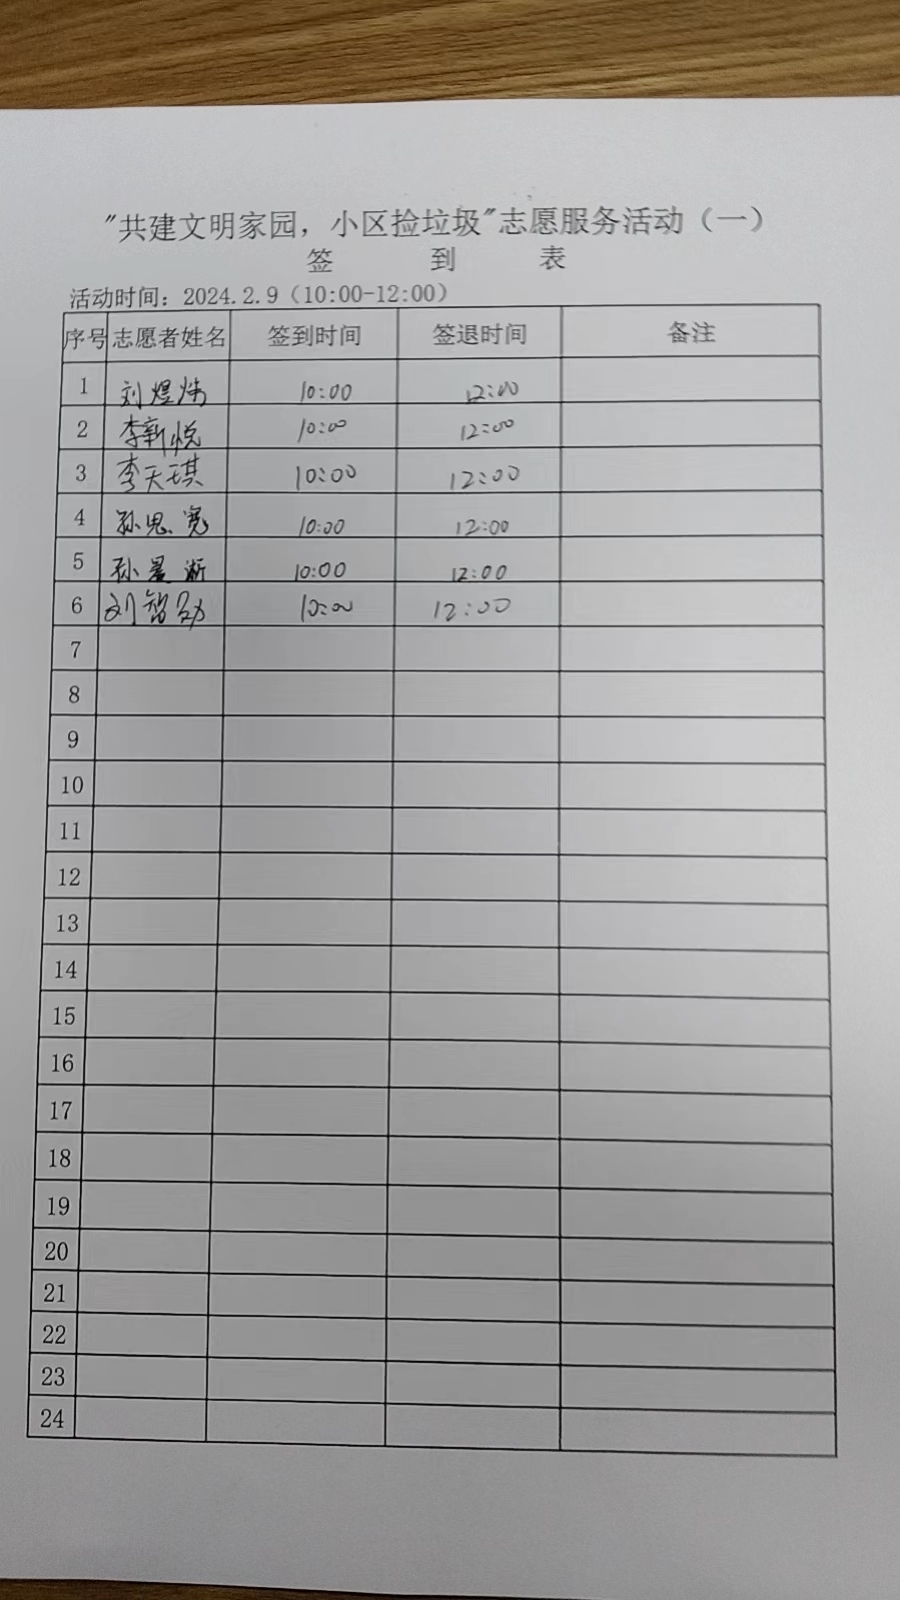 "共建文明家园，小区捡垃圾"志愿服务活动（一）
签 到 表
活动时间：2024.2.9（10:00-12:00）
序号 志愿者姓名 签到时间 签退时间 备注
1 刘煜炜 10:00 12:00
2 李新悦 10:00 12:00
3 李天琪 10:00 12:00
4 孙思宽 10:00 12:00
5 孙景淅 10:00 12:00
6 刘智劲 10:00 12:00
7
8
9
10
11
12
13
14
15
16
17
18
19
20
21
22
23
24